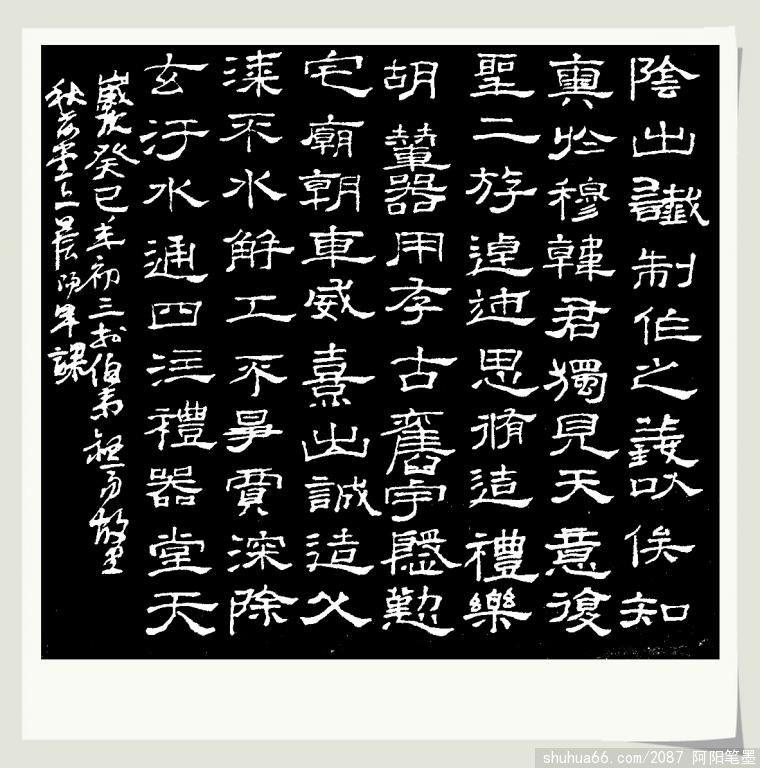 陰出讖制作之義以俟知
奧於穆韓君獨見天意復
聖二族逴越思脩造禮樂
胡輦器用存古舊宇慇懃
宅廟朝車威熹出誠造父
漆不水解工不爭賈深除
玄汙水通四注禮器堂天
歲次癸巳年初三於伯
秋 晨陽年課
shuhua66.com/2087 阿阳笔墨